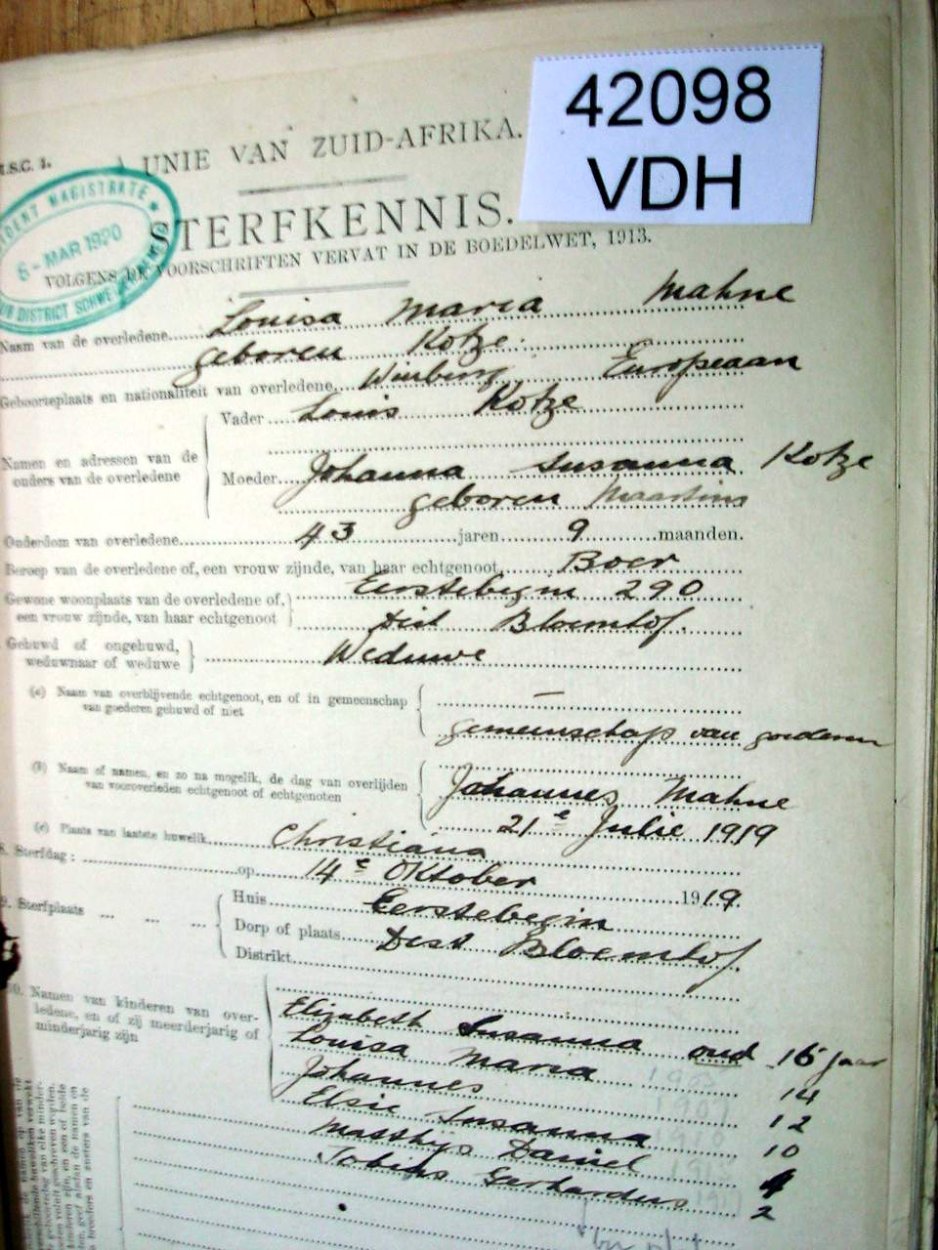 42098
VDH
UNIE VAN ZUID-AFRIKA.
STERFKENNIS.
VOLGENS DE VOORSCHRIFTEN VERVAT IN DE BOEDELWET, 1913.
MAGISTRATE
6 - MAR 1920
DISTRICT
Naam van de overledene Louisa Maria Mahne
geboren Kotze.
Geboorteplaats en nationaliteit van overledene Winburg Europeaan
Namen en adressen van de ouders van de overledene
Vader Louis Kotze
Moeder Johanna Susanna Kotze
geboren Maartins
Ouderdom van overledene 43 jaren 9 maanden.
Beroep van de overledene of, een vrouw zijnde, van haar echtgenoot Boer
Gewone woonplaats van de overledene of, een vrouw zijnde, van haar echtgenoot
Eerstebegin 290
Dist Bloemhof.
Gehuwd of ongehuwd, weduwnaar of weduwe
Weduwe
(a) Naam van overblijvende echtgenoot, en of in gemeenschap van goederen gehuwd of niet
—
gemeenschap van goederen
(b) Naam of namen, en zo na mogelik, de dag van overlijden van vooroverleden echtgenoot of echtgenoten
Johannes Mahne
21e Julie 1919
(c) Plaats van laatste huwelik Christiana
8. Sterfdag: op 14e Oktober 1919
9. Sterfplaats ... ... ...
Huis Eerstebegin
Dorp of plaats Dist Bloemhof
Distrikt
10. Namen van kinderen van overledene, en of zij meerderjarig of minderjarig zijn
Elizabeth Susanna oud 16 jaar
Louisa Maria 14
Johannes 12
Elsie Susanna 10
Matthijs Daniel 4
Tobias Gerhardus 2